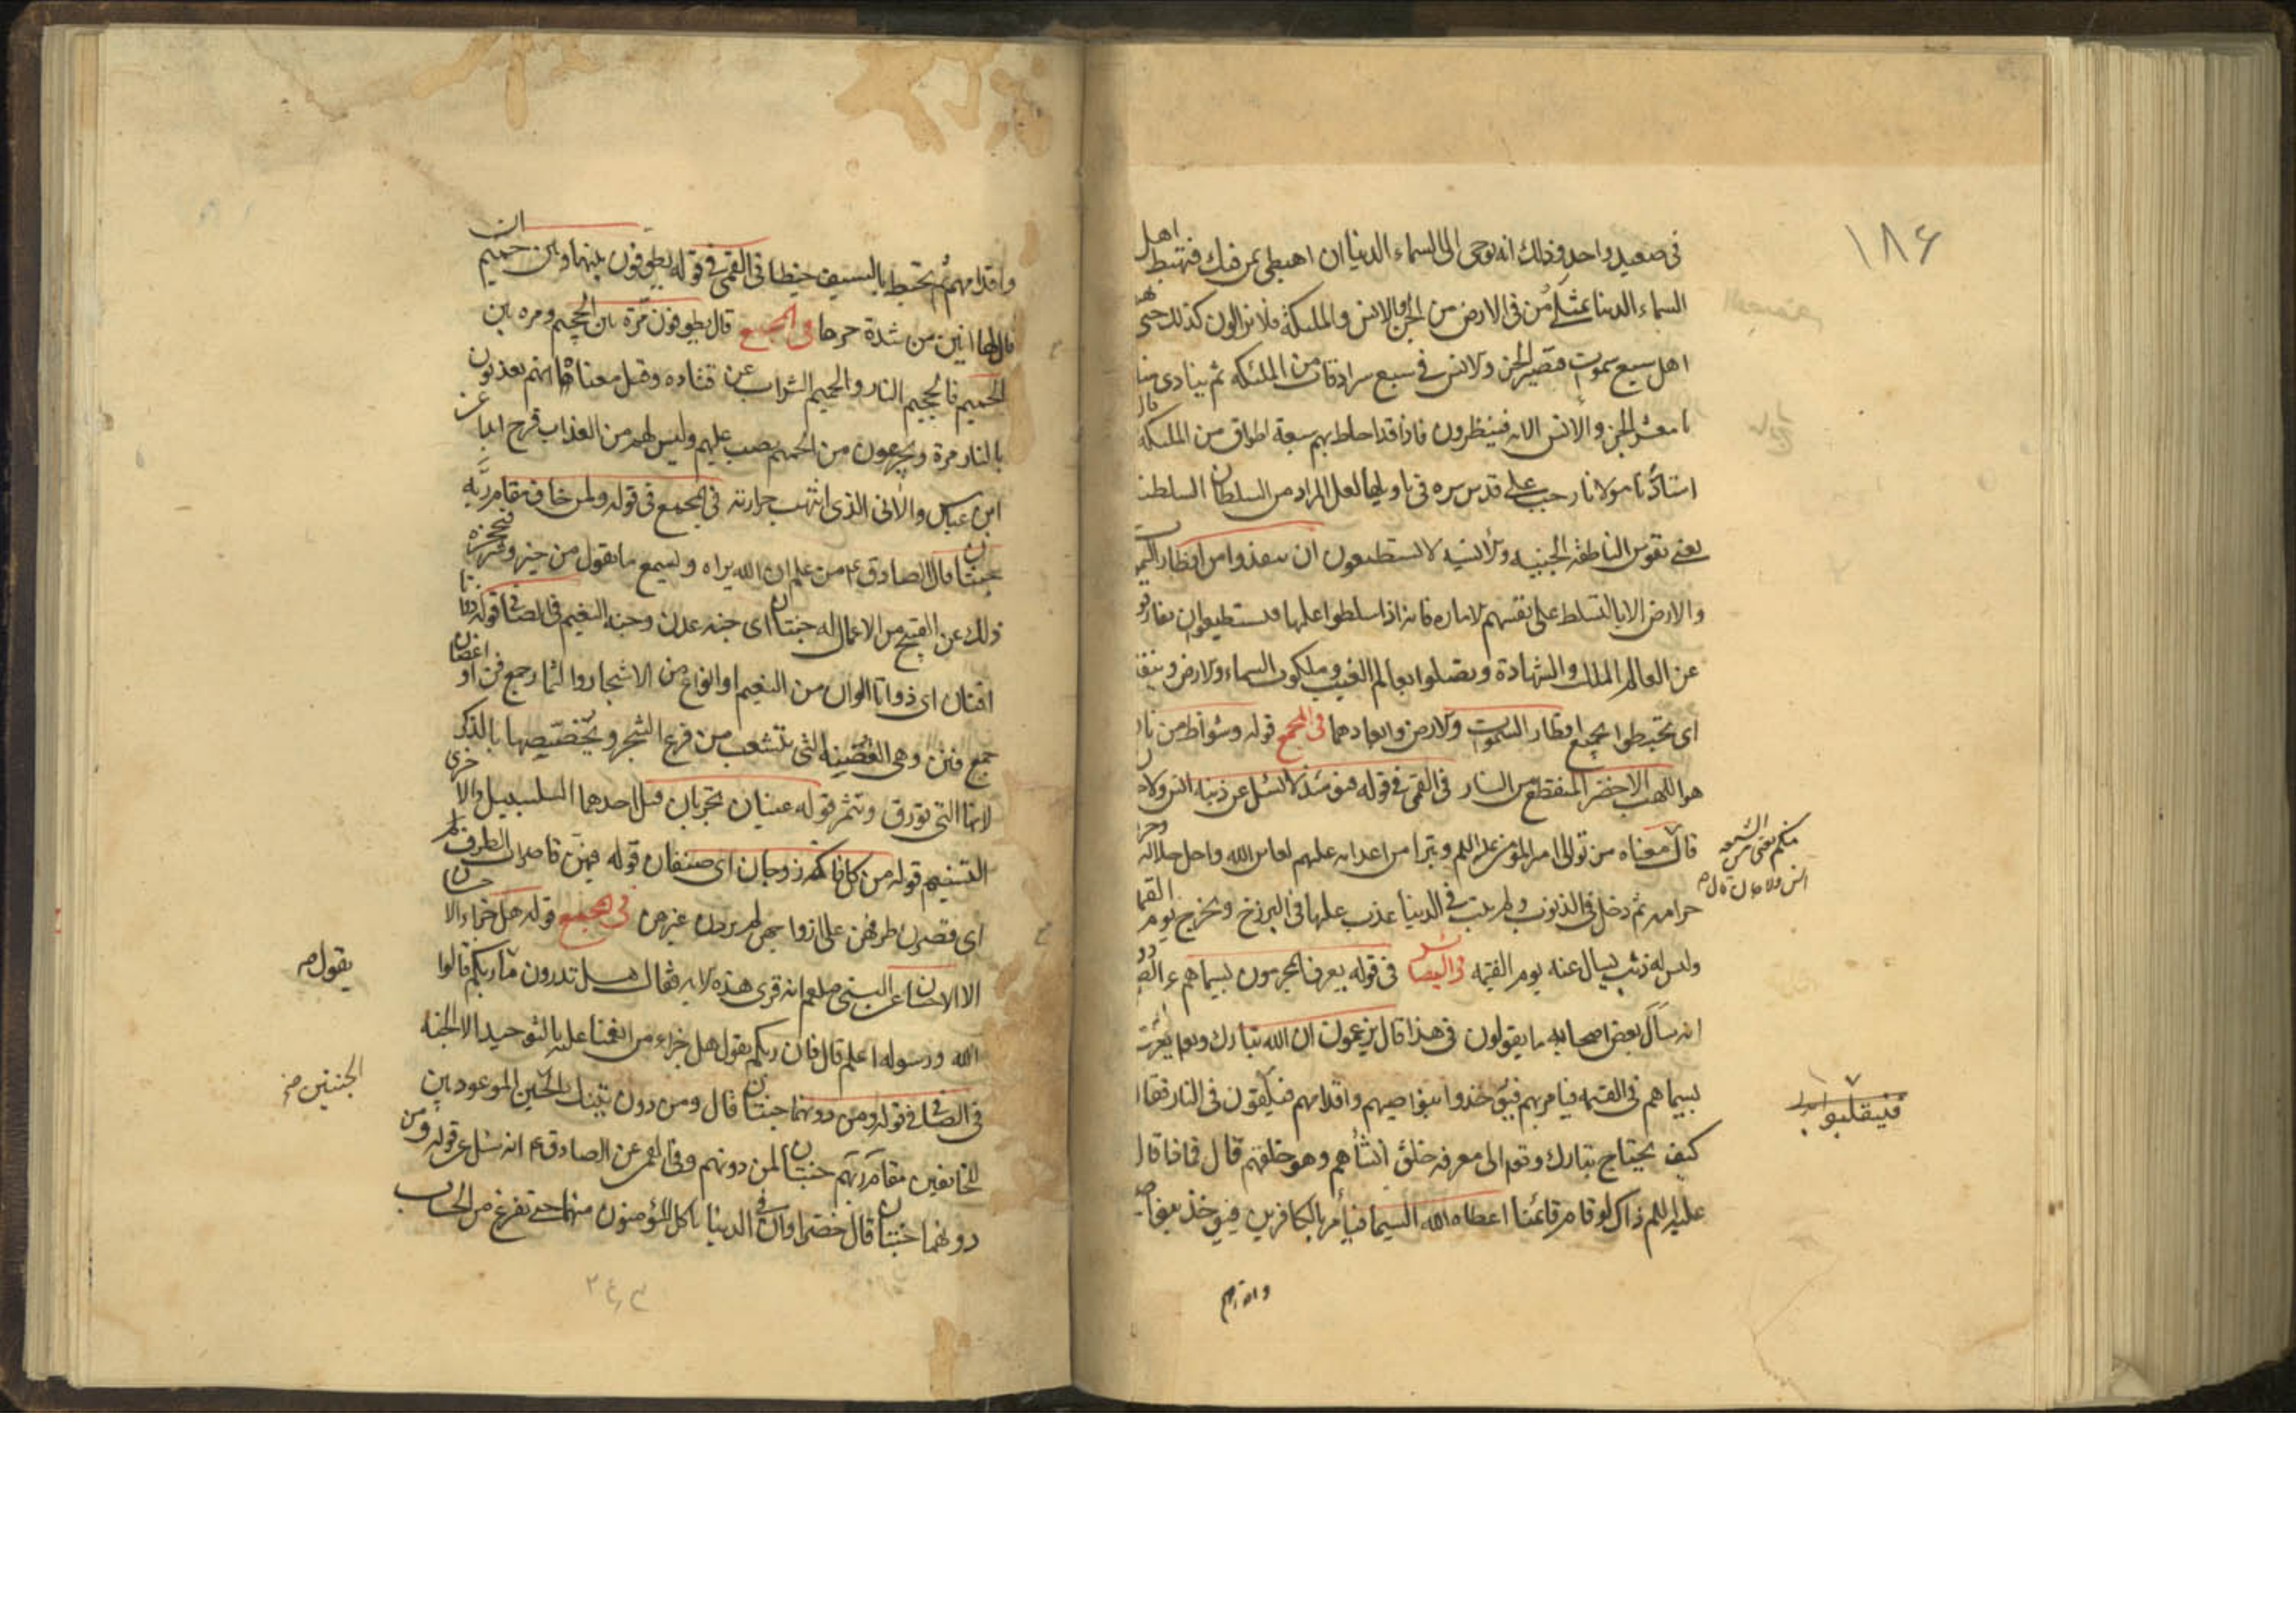 ١٨۶
فى صعيد واحد وذلك انه يوحى الى السماء الدنيا ان اهبطى بمن فيك فتهبط اهل
السماء الدنيا بمثلى من فى الارض من الجن والانس والملئكة فلا يزالون كذلك حتى
اهل سبع سموات فتصير الجن والانس فى سبع سرادقات من الملئكه ثم ينادى
يا معشر الجن والانس الايه فينظرون فاذا قد احاط بهم سبعة اطواق من الملئكه قال
استادنا مولانا رجب على قدس سره فى تاويلها لعل المراد من السلطان
يعنى نفوس الناطقه الجنيه والانسيه لا تستطيعون ان تنفذوا من اقطار
والارض الا بالتسلط على نفسهم الاماره فانه اذا سلطوا عليها فيستطيعوان
عن العالم الملك والشهادة ويصلوا بعالم الغيب وملكوت السماء والارض
اى يحيطوا بجميع اقطار السموات والارض وابعادهما فى المجمع قوله وشواظ من
هو اللهب الاخضر المنقطع من النار فى القمى فى قوله فيومئذ لا يسئل عن ذنبه انس ولا
منكم يعنى من الشيعه
انس ولا جان قال
قال معناه من توالى امير المؤمنين عليه السلم وتبرا من اعدائه عليهم لعاين الله واحل حلاله وحرم
حرامه ثم دخل فى الذنوب ولم يتب فى الدنيا عذب عليها فى البرزخ ويخرج يوم القيمة
وليس له ذنب يسال عنه يوم القيمه فى البصائر فى قوله يعرف المجرمون بسيماهم
انه سأل بعض اصحابه ما يقولون فى هذا قال يزعمون ان الله تبارك وتعالى يعرف
بسيماهم فى القيمه فيامر بهم فيؤخذوا بنواصيهم واقدامهم فيلقون فى النار فقال
كيف يحتاج تبارك وتعالى الى معرفه خلق انشأهم وهو خلقهم قال فما ذا قال
عليه السلم ذاك لو قام قائمنا اعطاه الله السيما فيأمر بالكافرين فيؤخذ
واقدامهم
واقدامهم ثم يخبط بالسيف خبطا فى القمى فى قوله يطوفون بينها وبين حميم ان
قال لها انين من شدة حرها فى المجمع قال يطوفون مرة بين الجحيم ومره بين
الحميم فالجحيم النار والحميم الشراب عن قتاده وقيل معناه انهم يعذبون
بالنار مرة ويجرعون من الحميم يصب عليهم وليس لهم من العذاب فرج ابدا عن
ابن عباس والآنى الذى انتهت حرارته فى المجمع فى قوله ولمن خاف مقام ربه
جنتان قال الصادق ع من علم ان الله يراه ويسمع ما يقول من خير وشر فيحجزه
ذلك عن القبيح من الاعمال له جنتان اى جنه عدن وجنه النعيم فى الصافى قوله ذواتا
افنان اى ذواتا الوان من النعيم او انواع من الاشجار والثمار جمع فن او اغصان
جمع فنن وهى الغصينه التى تتشعب من فرع الشجر وتخصيصها بالذكر
لانها التى تورق وتثمر قوله عينان تجريان قيل احدهما السلسبيل والاخرى
التسنيم قوله من كل فاكهة زوجان اى صنفان قوله فيهن قاصرات الطرف
اى قصرن طرفهن على ازواجهن لم يردن غيرهن فى المجمع قوله هل جزاء الاحسان
الا الاحسان عن النبى صلعم انه قرى هذه الايه فقال هل تدرون ما ربكم قالوا
يقول صح
الله ورسوله اعلم قال فان ربكم يقول هل جزاء من انعمنا عليه بالتوحيد الا الجنه
الجنتين صح
فى الصافى فى قوله ومن دونهما جنتان قال ومن دون تينك الجنتين الموعودتين
للخائفين مقام ربهم جنتان لمن دونهم وفى القمى عن الصادق ع انه سئل عن قوله ومن
دونهما جنتان قال خضراوان فى الدنيا ياكل المؤمنون منهما حتى تفرغ من الحساب